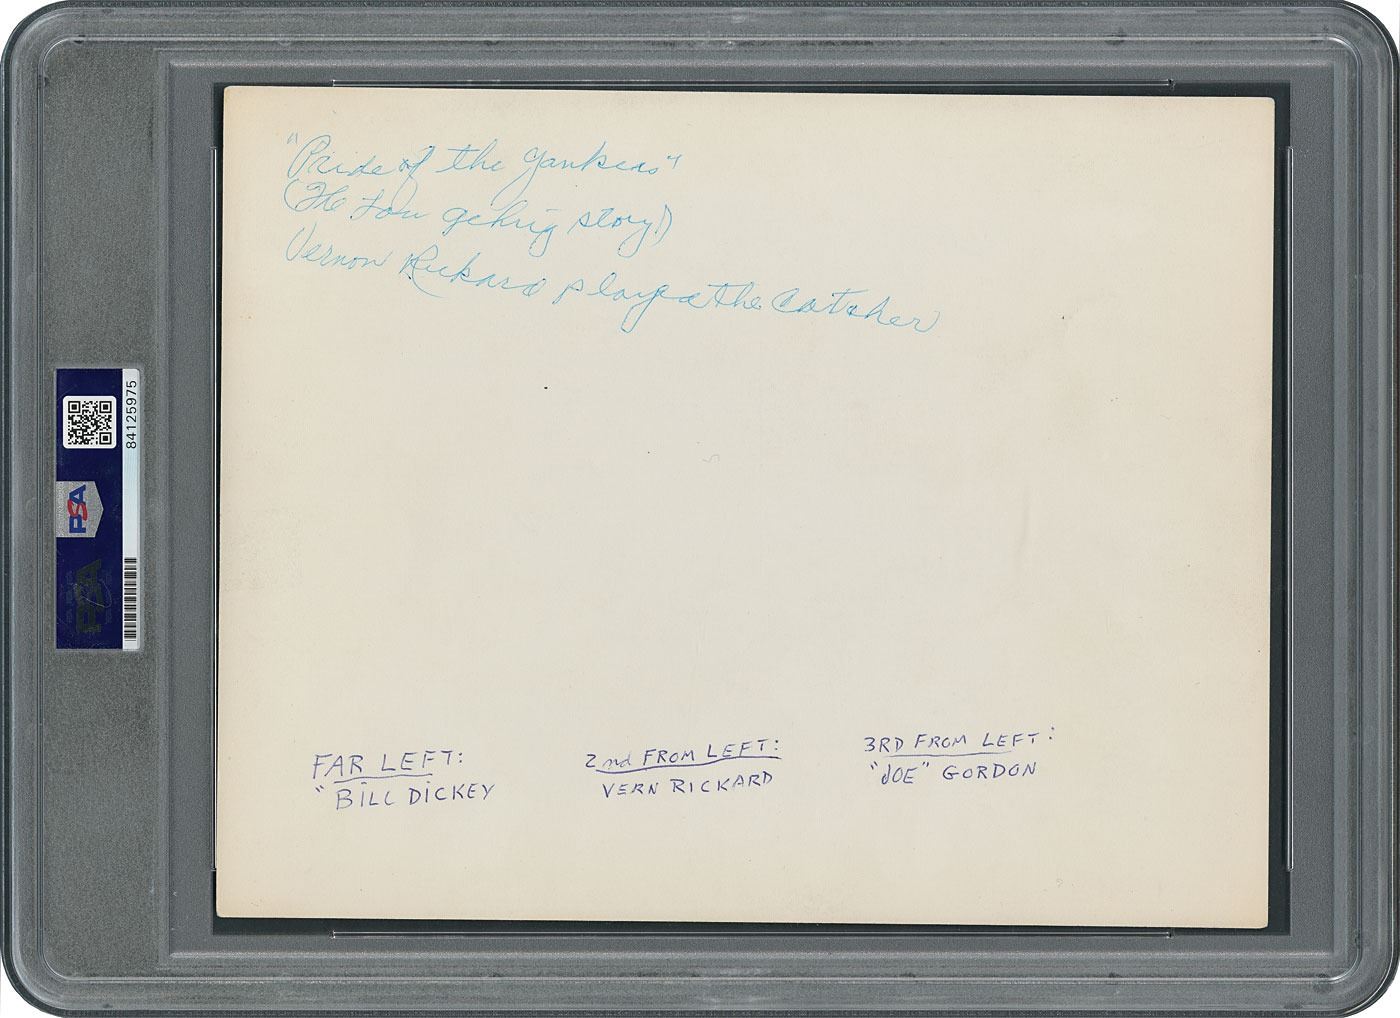 "Pride of the Yankees"
(The Lou Gehrig story!)
Vernon Rickard played the Catcher
FAR LEFT:
"BILL DICKEY
2nd FROM LEFT:
VERN RICKARD
3RD FROM LEFT:
"JOE" GORDON
84125975
PSA
PSA